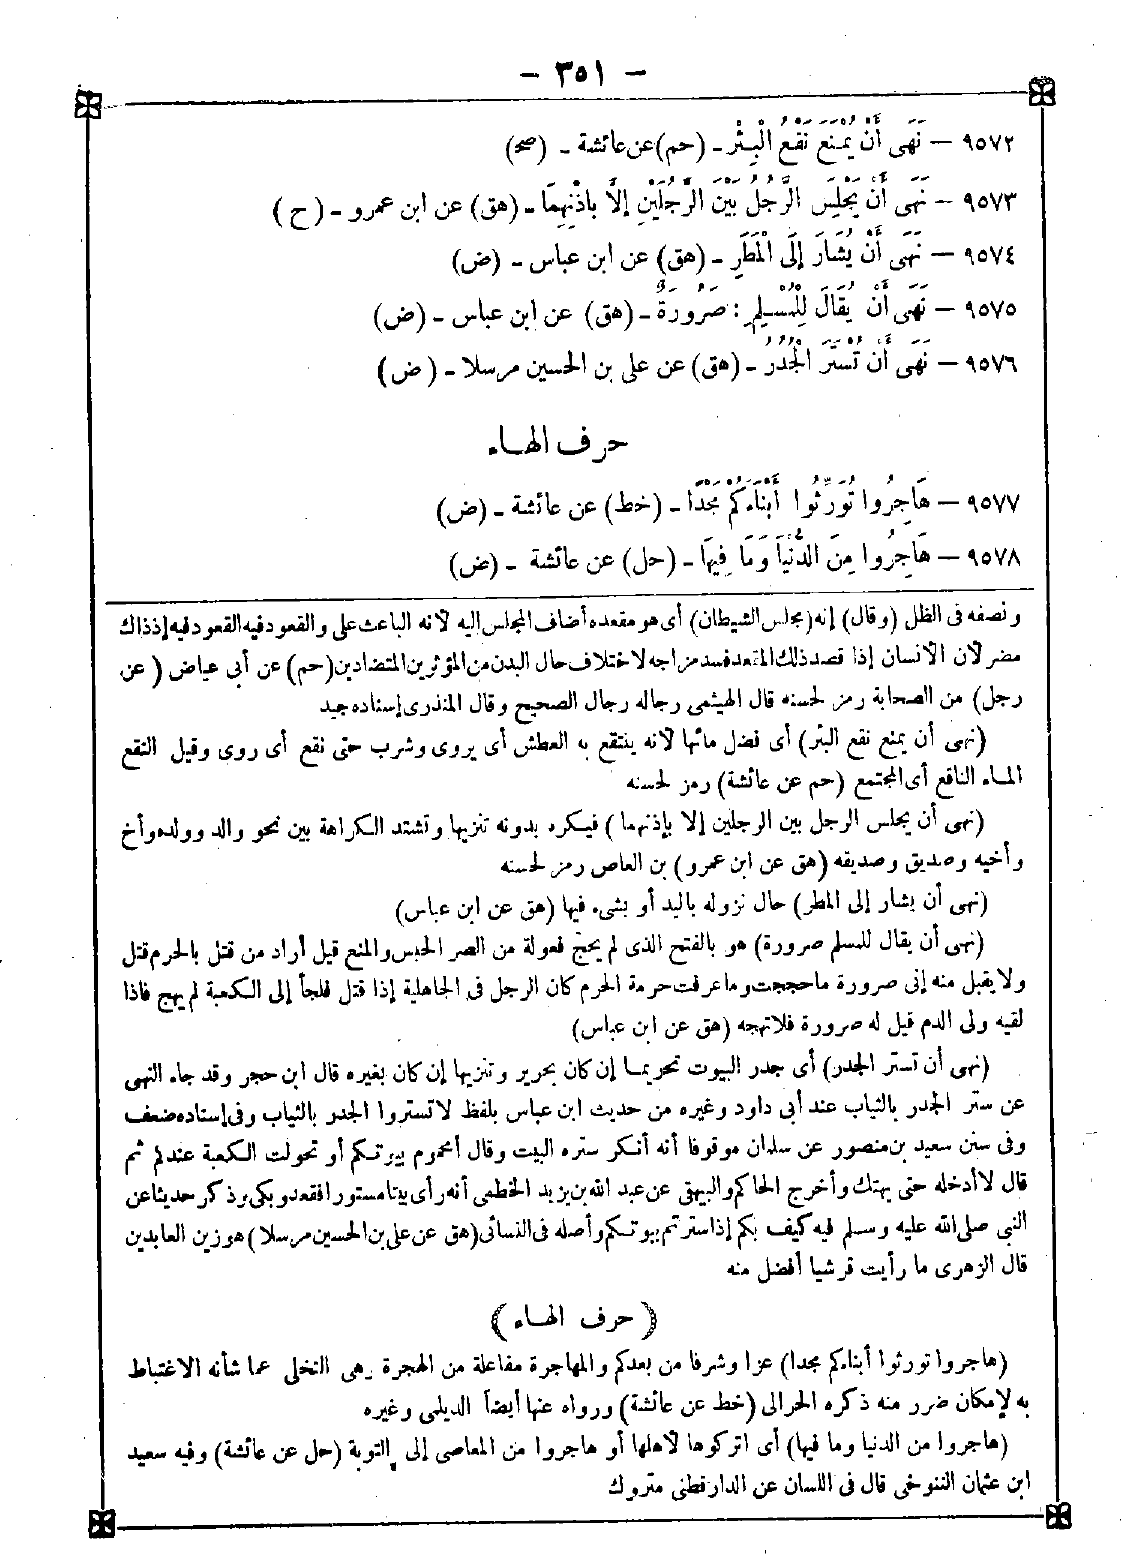 - ٣٥١ -
٩٥٧٢ - نَهَى أَنْ يُمْنَعَ نَقْعُ الْبِئْرِ - (حم) عن عائشة - (صح)
٩٥٧٣ - نَهَى أَنْ يَجْلِسَ الرَّجُلُ بَيْنَ الرَّجُلَيْنِ إِلَّا بِإِذْنِهِمَا - (هق) عن ابن عمرو - (ح)
٩٥٧٤ - نَهَى أَنْ يُشَارَ إِلَى الْمَطَرِ - (هق) عن ابن عباس - (ض)
٩٥٧٥ - نَهَى أَنْ يُقَالَ لِلْمُسْلِمِ: صَرُورَةٌ - (هق) عن ابن عباس - (ض)
٩٥٧٦ - نَهَى أَنْ تُسْتَرَ الْجُدُرُ - (هق) عن على بن الحسين مرسلا - (ض)
حرف الهاء
٩٥٧٧ - هَاجِرُوا تُوَرِّثُوا أَبْنَاءَكُمْ مَجْدًا - (خط) عن عائشة - (ض)
٩٥٧٨ - هَاجِرُوا مِنَ الدُّنْيَا وَمَا فِيهَا - (حل) عن عائشة - (ض)
ونصفه فى الظل (وقال) إنه (مجلس الشيطان) أى هو مقعده أضاف المجلس إليه لأنه الباعث على والقعود فيه القعود فيه إذ ذاك
مضر لأن الانسان إذا قصد ذلك المقعد فسد مزاجه لاختلاف حال البدن من المؤثرين المتضادين (حم) عن أبى عياض (عن
رجل) من الصحابة رمز لحسنه قال الهيثمى رجاله رجال الصحيح وقال المنذرى إسناده جيد
(نهى أن يمنع نقع البئر) أى فضل مائها لأنه ينتقع به العطش أى يروى وشرب حتى نقع أى روى وقيل النقع
الماء الناقع أى المجتمع (حم عن عائشة) رمز لحسنه
(نهى أن يجلس الرجل بين الرجلين إلا بإذنهما) فيكره بدونه تنزيها وتشتد الكراهة بين نحو والد وولده وأخ
وأخيه وصديق وصديقه (هق عن ابن عمرو) بن العاص رمز لحسنه
(نهى أن يشار إلى المطر) حال نزوله باليد أو بشىء فيها (هق عن ابن عباس)
(نهى أن يقال للمسلم صرورة) هو بالفتح الذى لم يحج فعولة من الصر الحبس والمنع قيل أراد من قتل بالحرم قتل
ولا يقبل منه إنى صرورة ما حججت وما عرفت حرمة الحرم كان الرجل فى الجاهلية إذا قتل فلجأ إلى الكعبة لم يهج فاذا
لقيه ولى الدم قيل له صرورة فلا تهجه (هق عن ابن عباس)
(نهى أن تستر الجدر) أى جدر البيوت تحريما إن كان بحرير وتنزيها إن كان بغيره قال ابن حجر وقد جاء النهى
عن ستر الجدر بالثياب عند أبى داود وغيره من حديث ابن عباس بلفظ لا تستروا الجدر بالثياب وفى إسناده ضعف
وفى سنن سعيد بن منصور عن سلمان موقوفا أنه أنكر ستره البيت وقال أمحموم بيوتكم أو تحولت الكعبة عندكم ثم
قال لا أدخله حتى يهتك وأخرج الحاكم والبيهقى عن عبد الله بن يزيد الخطمى أنه رأى بيتا مستورا فقعد وبكى وذكر حديثا عن
النبى صلى الله عليه وسلم فيه كيف بكم إذا سترتم بيوتكم وأصله فى النسائى (هق عن على بن الحسين مرسلا) هو زين العابدين
قال الزهرى ما رأيت قرشيا أفضل منه
(حرف الهاء)
(هاجروا تورثوا أبناءكم مجدا) عزا وشرفا من بعدكم والمهاجرة مفاعلة من الهجرة وهى التخلى عما شأنه الاغتباط
به لإمكان ضرر منه ذكره الحرالى (خط عن عائشة) ورواه عنها أيضا الديلمى وغيره
(هاجروا من الدنيا وما فيها) أى اتركوها لأهلها أو هاجروا من المعاصى إلى التوبة (حل عن عائشة) وفيه سعيد
ابن عثمان التنوخى قال فى اللسان عن الدارقطنى متروك